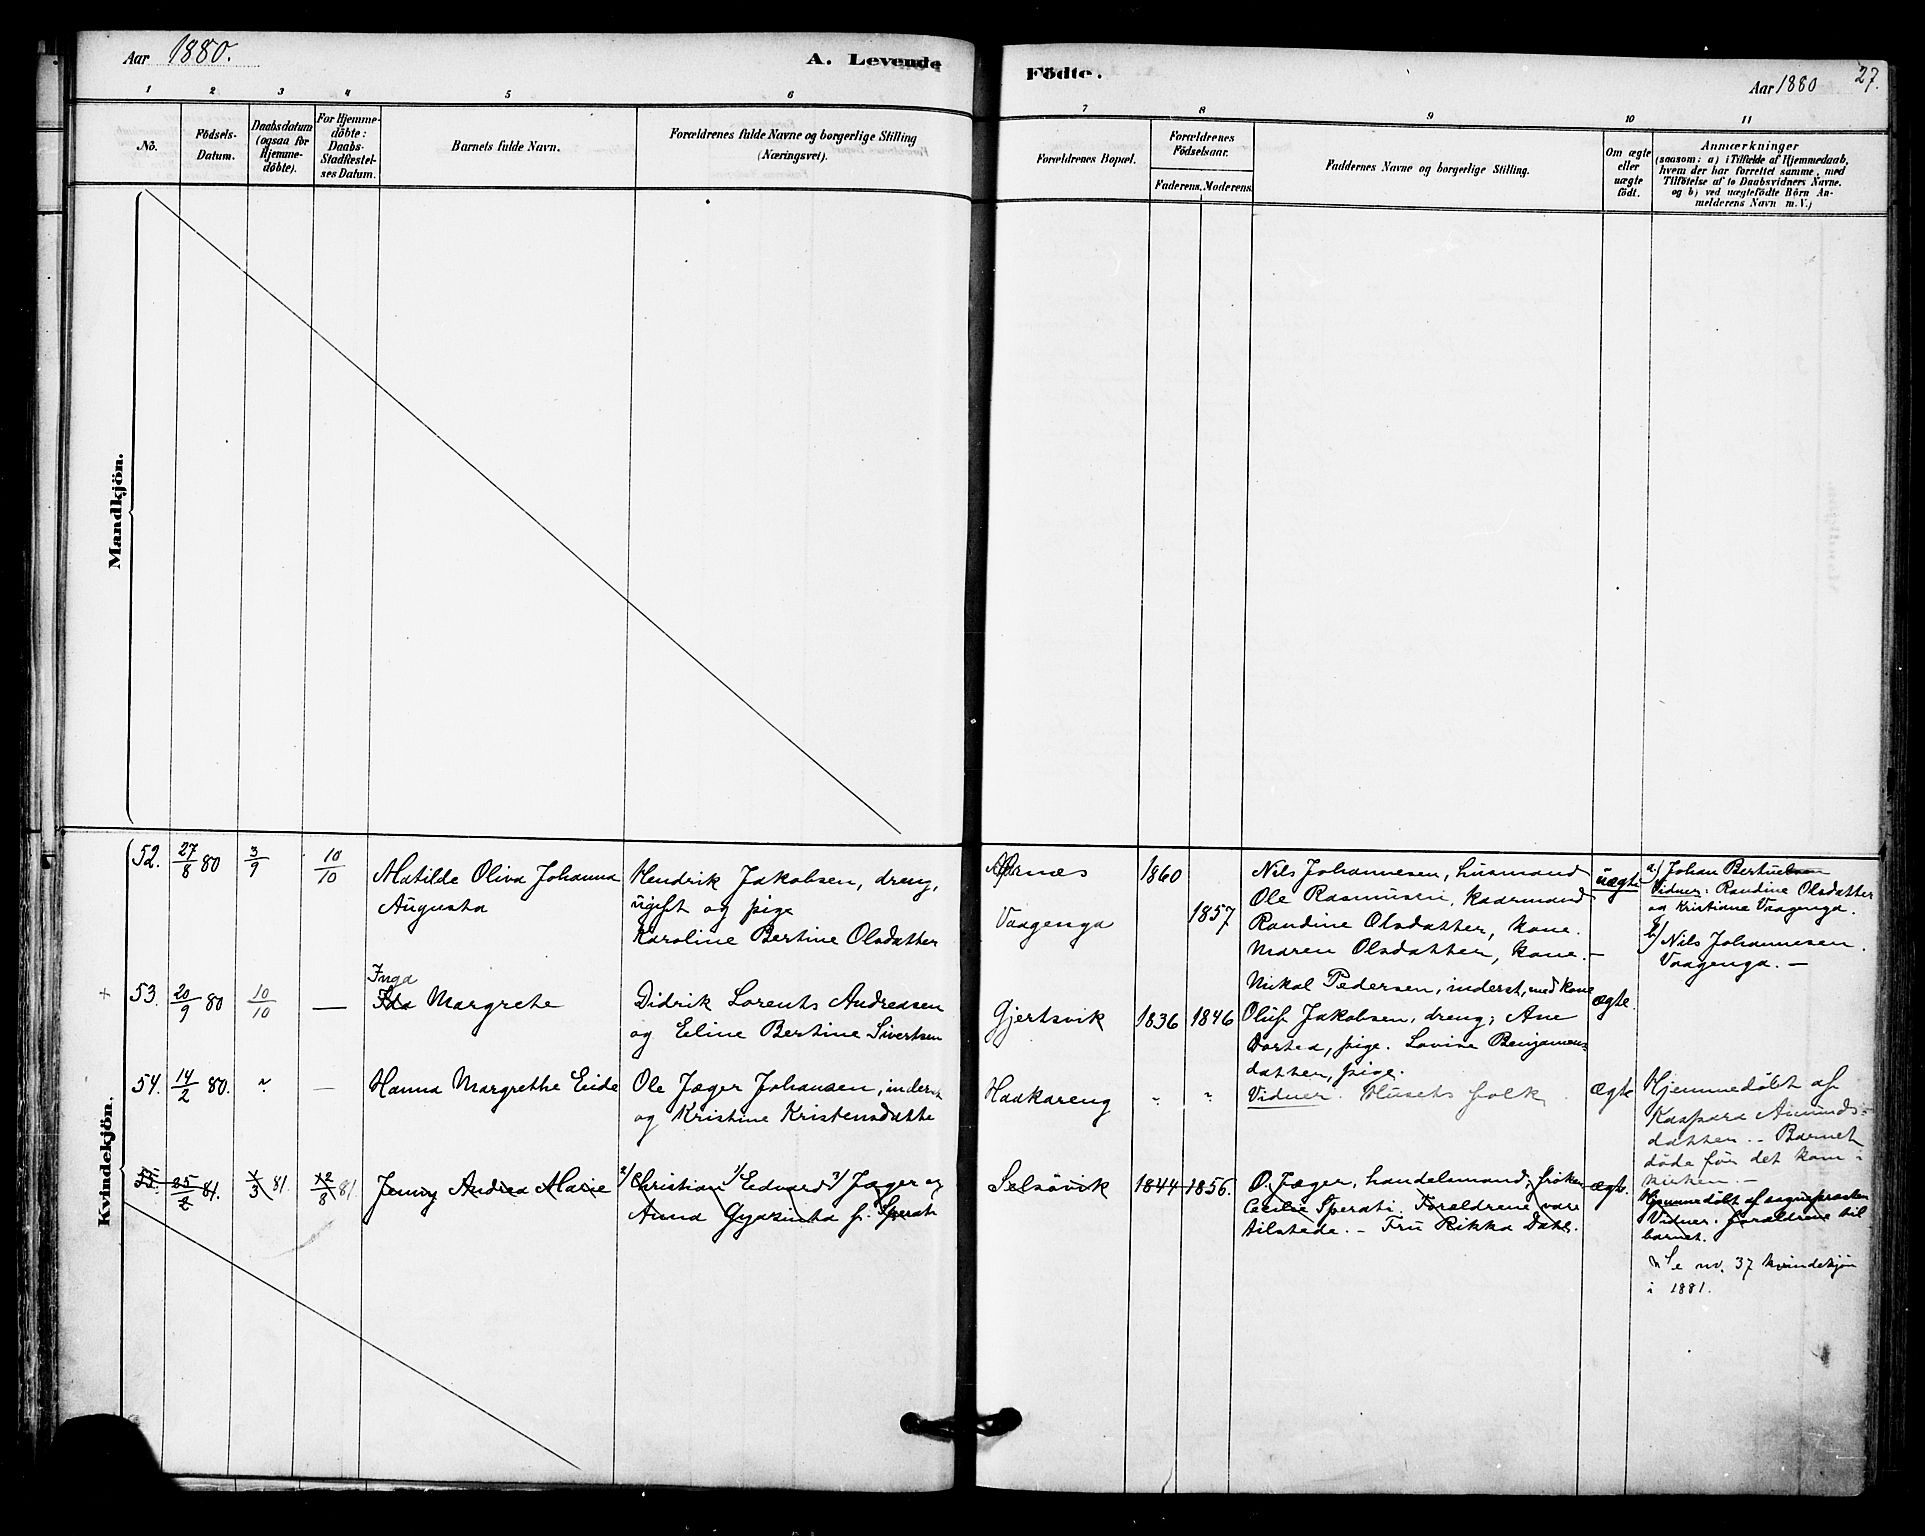 Aar 1880.
A. Levende
Födte.
Aar 1880
27.
1 2 3 4 5 6 7 8 9 10 11
No.
Födsels-
Datum.
Daabsdatum
(ogsaa for
Hjemme-
döbte).
For Hjemme-
döbte:
Daabs-
Stadfestel-
ses Datum.
Barnets fulde Navn.
Forældrenes fulde Navne og borgerlige Stilling
(Næringsvei).
Forældrenes Bopæl.
Forældrenes
Födselsaar.
Faderens. Moderens.
Faddernes Navne og borgerlige Stilling.
Om ægte
eller
uægte
födt.
Anmærkninger
(saasom: a) i Tilfælde af Hjemmedaab,
hvem der har forrettet samme, med
Tilföielse af to Daabsvidners Navne.
og b) ved uægtefödte Börn An-
melderens Navn m.V.)
Mandkjön.
Kvindekjön.
52. 27/8 80 3/9 10/10
Matilde Oliva Johanna
Augusta
Hendrik Jakobsen, dreng,
ugift og pige
Karoline Bertine Olsdatter
Vaagenga
1860
1857
Nils Johannesen, husmand
Ole Rasmusen, kaarmand
Randine Olsdatter, kone.
Maren Olsdatter, kone. –
uægte
a) Johan Bertuelsen
Vidner: Randine Olsdatter
og Kristiane Vaagenga.
b) Nils Johannesen.
Vaagenga. –
+ 53. 20/9 80 10/10 —
Inga
Ida Margrete
Didrik Lorents Andreasen
og Eline Bertine Sivertsen
Gjertsvik
1836 1846
Nikol Pedersen, inderst, med kone
Oluf Jakobsen, dreng; Ane
Dortea, pige. Lovise Benjamins-
datter, pige.
ægte.
54. 14/2 80. " —
Hanna Margrethe Eide
Ole Jæger Johansen, inderst
og Kristine Kristensdatte
Haakareng
" "
Vidner. Husets folk.
ægte
Hjemmedöbt af
Kaspara Amunds-
datter. - Barnet
döde för det kom i
kirken. –
55. 25/2 81. 81. 81
Jenny Andrea Marie
2/ Christian 1/ Edvard 3/ Jæger og
Anna Gyakinta f. Sperati
Selsövik
1844 1856.
O. Jæger, handelsmand, fröken
Cecilie Sperati. Forældrene vare
tilstede. – Fru Rikka Dahl.
ægte.
Hjemmedöbt af sognepræsten
Vidner. forældrene til
barnet.
Se no. 37 kvindekjön
i 1881.